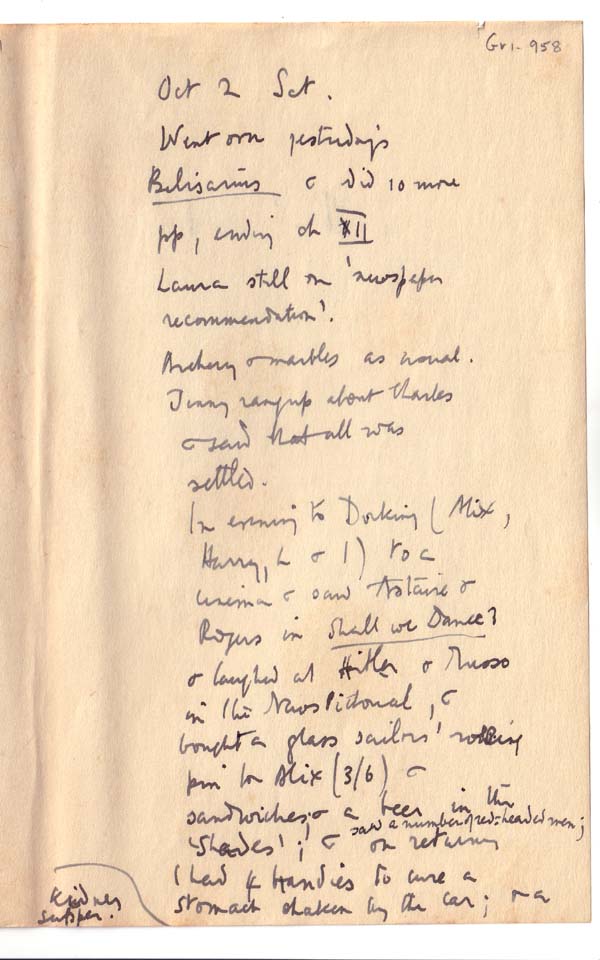 Gr1-958
Oct 2 Sat.
Went over yesterday's
Belisarius & did 10 more
pp, ending ch XII
Laura still on 'newspaper
recommendation'.
Archery & marbles as usual.
Jenny rang up about Charles
& said that all was
settled.
In evening to Dorking (Alix,
Harry, L & I) to a
cinema & saw Astaire &
Rogers in Shall we Dance?
& laughed at Hitler & Musso
in the News Pictorial, &
bought a glass sailors' rolling
pin for Alix (3/6) &
sandwiches & a beer in the
saw a number of red-headed men;
'Shades'; & on returning
I had 4 brandies to cure a
stomach shaken by the car; & a
kidney
supper.